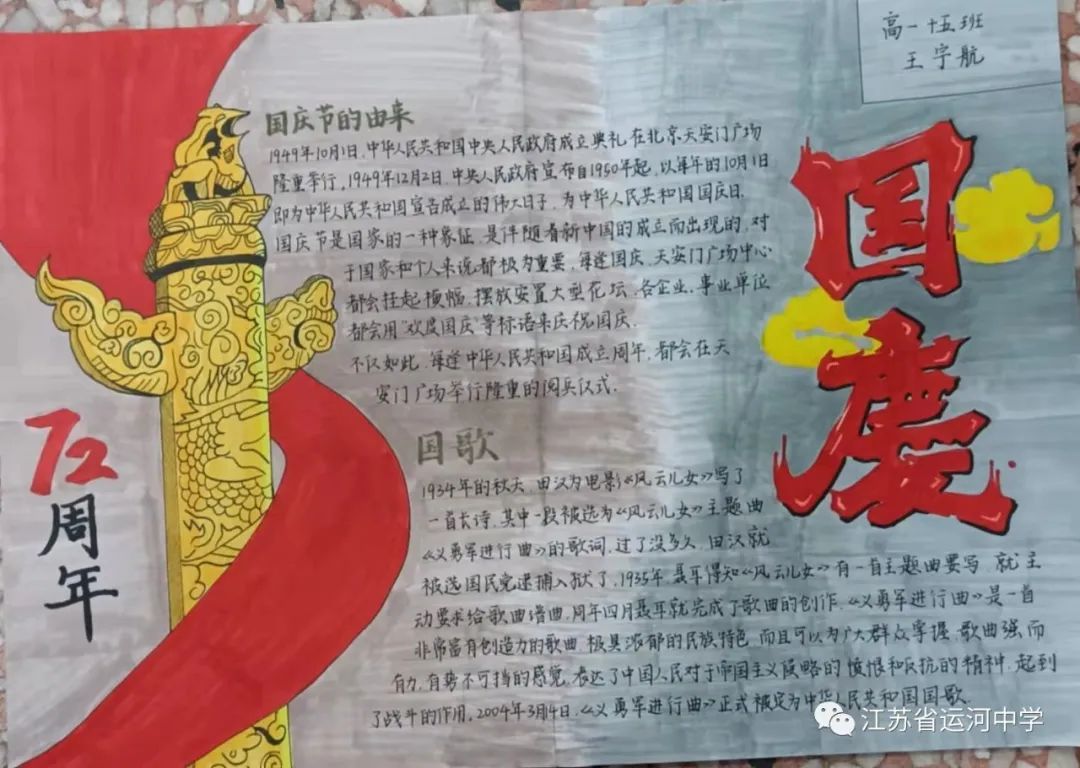 高一十五班
王宇航
国庆
国庆节的由来
1949年10月1日,中华人民共和国中央人民政府成立典礼在北京天安门广场
隆重举行。1949年12月2日,中央人民政府宣布自1950年起,以每年的10月1日
即为中华人民共和国宣告成立的伟大日子,为中华人民共和国国庆日.
国庆节是国家的一种象征,是伴随着新中国的成立而出现的,对
于国家和个人来说都极为重要,每逢国庆,天安门广场中心
都会挂起横幅,摆放安置大型花坛,各企业、事业单位
都会用"欢度国庆"等标语来庆祝国庆.
不仅如此,每逢中华人民共和国成立周年,都会在天
安门广场举行隆重的阅兵仪式.
72
周
年
国歌
1934年的秋天,田汉为电影《风云儿女》写了
一首长诗,其中一段被选为《风云儿女》主题曲
《义勇军进行曲》的歌词,过了没多久,田汉就
被选国民党逮捕入狱了,1935年,聂耳得知《风云儿女》有一首主题曲要写,就主
动要求给歌曲谱曲,周年四月聂耳就完成了歌曲的创作.《义勇军进行曲》是一首
非常富有创造力的歌曲,极具浓郁的民族特色,而且可以为广大群众掌握,歌曲强而
有力,有势不可挡的感觉,表达了中国人民对于帝国主义侵略的愤恨和反抗的精神,起到
了战斗的作用,2004年3月4日,《义勇军进行曲》正式被定为中华人民共和国国歌.
江苏省运河中学